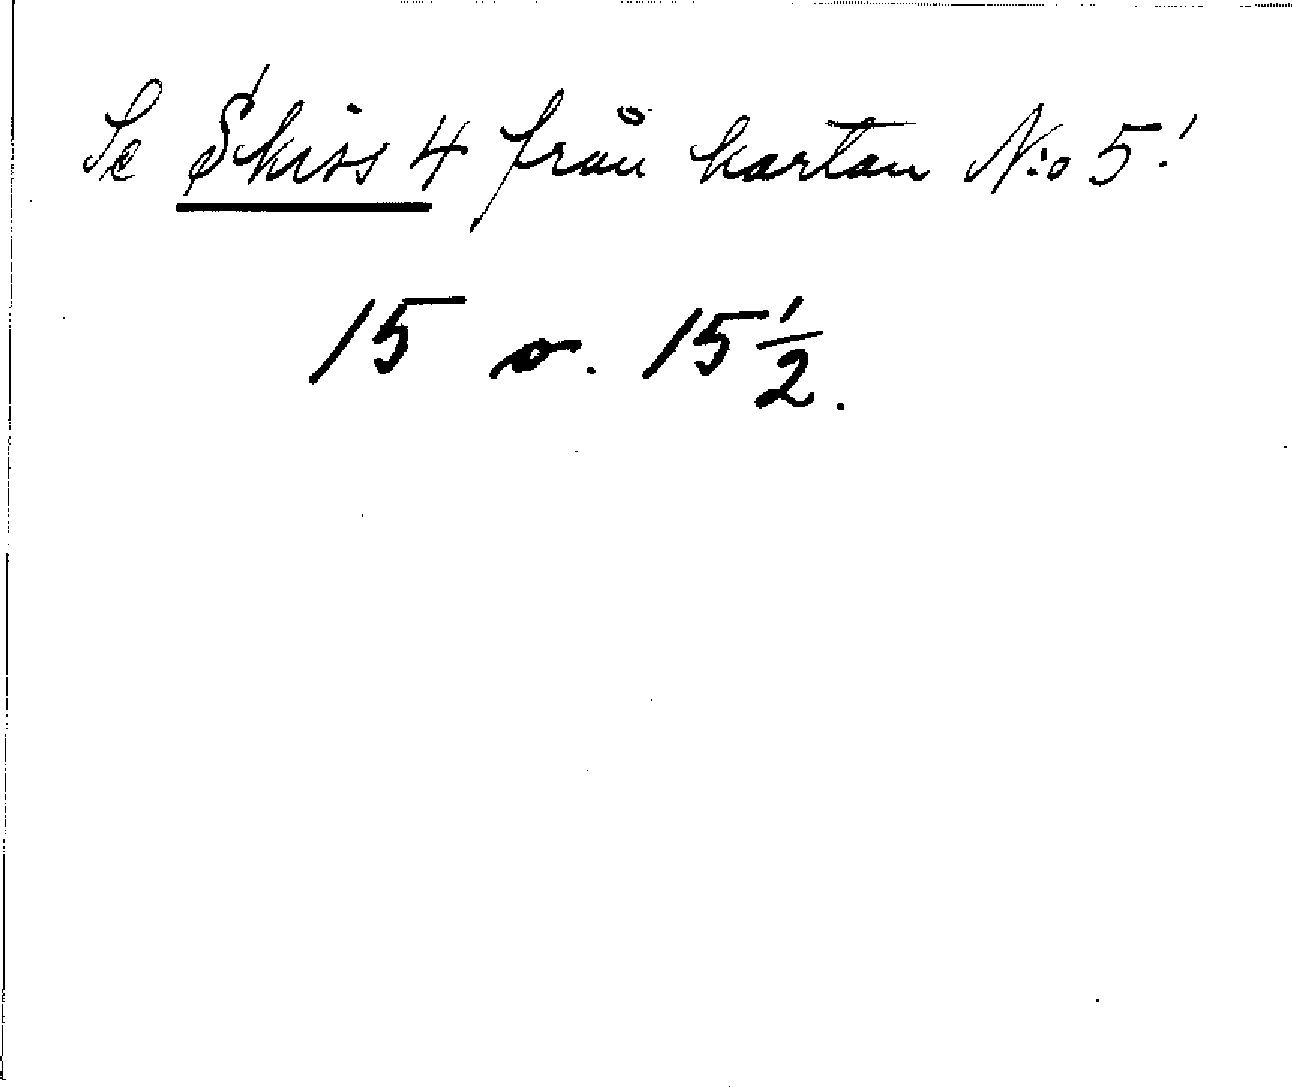 Se Skiss 4 från kartan N:o 5!
15 o. 15 1/2.